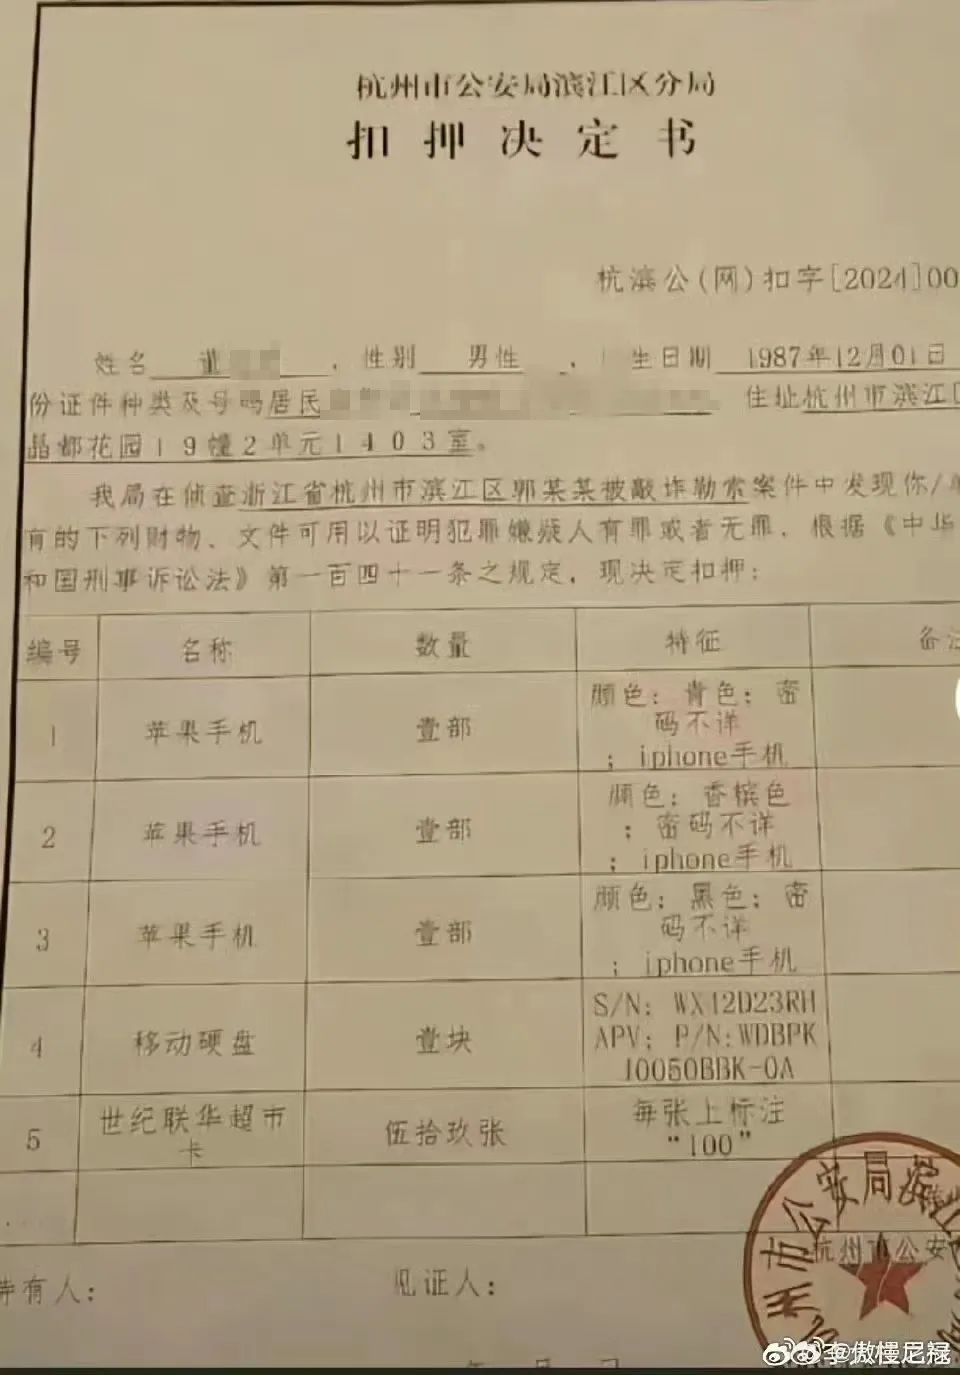 杭州市公安局滨江区分局
扣押决定书
杭滨公(网)扣字[2024]00
姓名 董 ，性别 男性 ， 生日期 1987年12月01日
份证件种类及号码居民 住址杭州市滨江区
晶都花园19幢2单元1403室。
我局在侦查浙江省杭州市滨江区郭某某被敲诈勒索案件中发现你/
有的下列财物、文件可用以证明犯罪嫌疑人有罪或者无罪，根据《中华
和国刑事诉讼法》第一百四十一条之规定，现决定扣押：
编号 名称 数量 特征 备注
1 苹果手机 壹部 颜色：青色；密
码不详
；iphone手机
2 苹果手机 壹部 颜色：香槟色
；密码不详
；iphone手机
3 苹果手机 壹部 颜色：黑色；密
码不详
；iphone手机
4 移动硬盘 壹块 S/N：WX12D23RH
APV；P/N:WDBPK
10050BBK-0A
5 世纪联华超市
卡 伍拾玖张 每张上标注
“100”
杭州市公安局滨江
杭州市公安
持有人： 见证人：
年 月 日
@傲慢尼禄